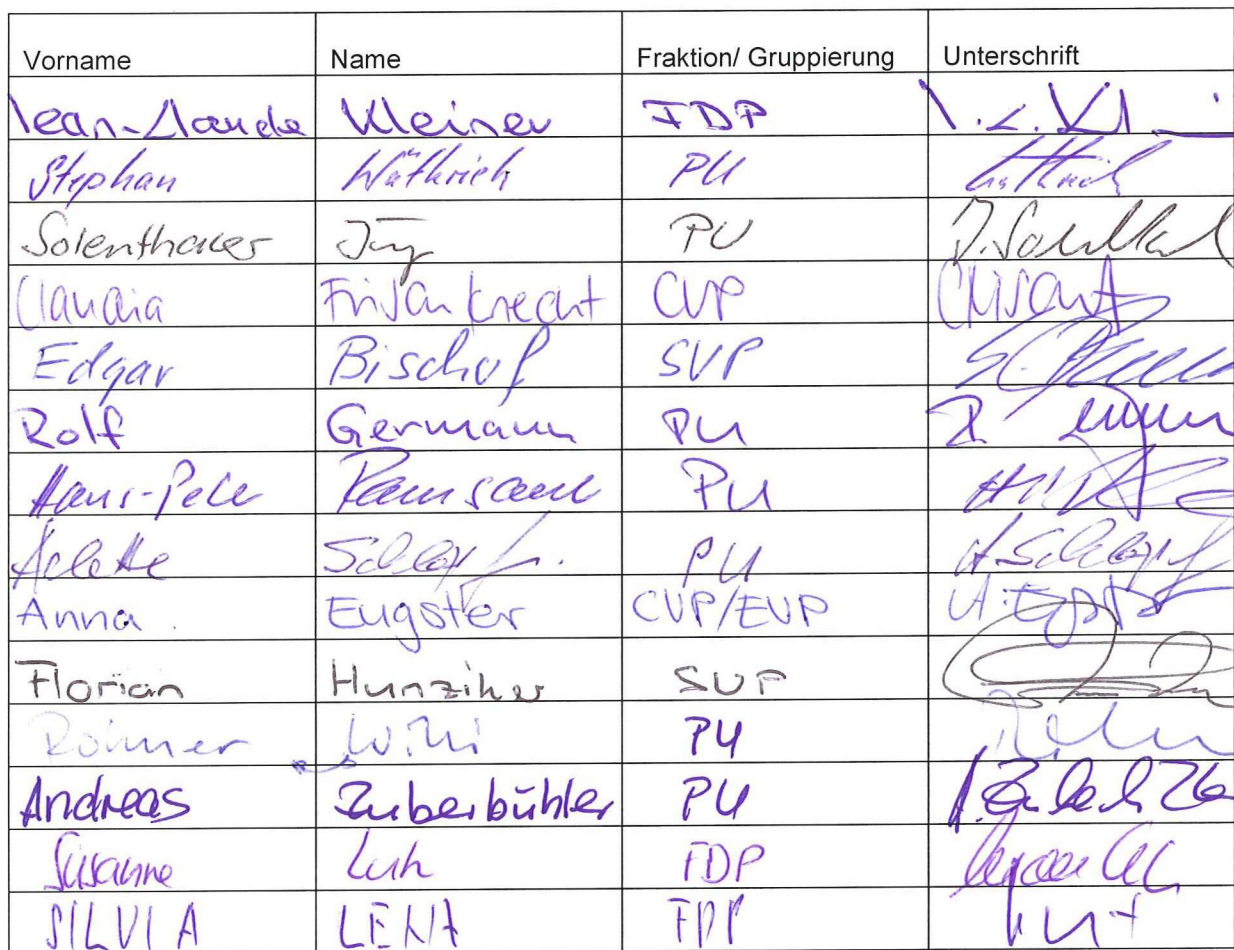 Vorname Name Fraktion/ Gruppierung Unterschrift
Jean-Claude Kleiner FDP
Stephan Wüthrich PU
Solenthaler Jürg PU
Claudia Frischknecht CVP
Edgar Bischof SVP
Rolf Germann PU
Hans-Peter Ramsauer PU
Arlette Schläpfer PU A. Schläpf
Anna Eugster CVP/EVP
Florian Hunziker SVP
Rohner Willi PU
Andreas Zuberbühler PU
Susanne Lutz FDP
SILVIA LENZ FDP